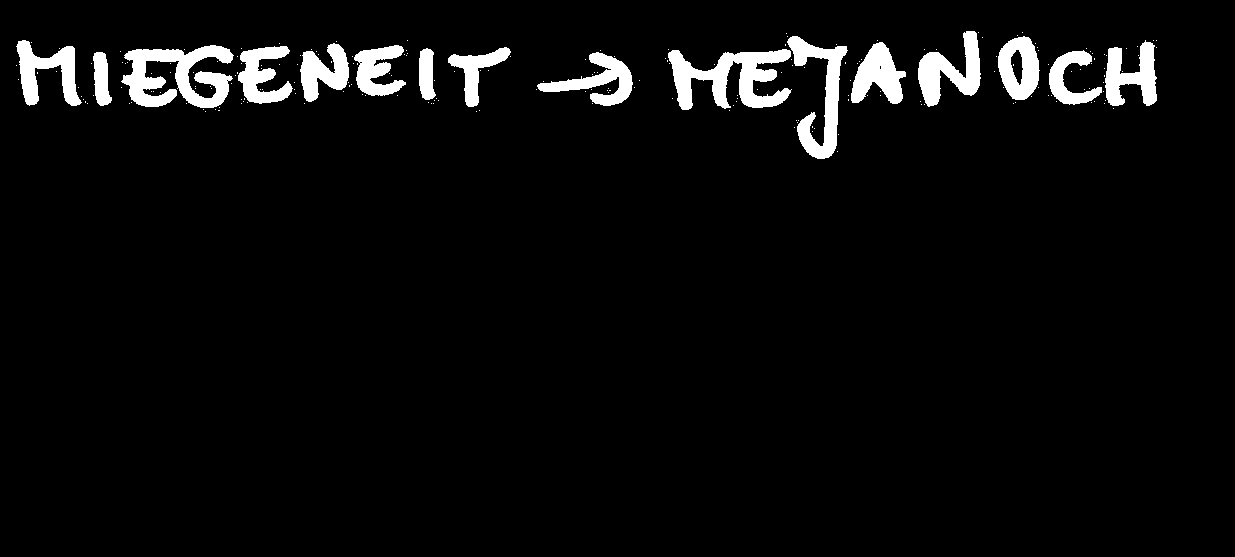 MIEGENEIT → MEJANOCH